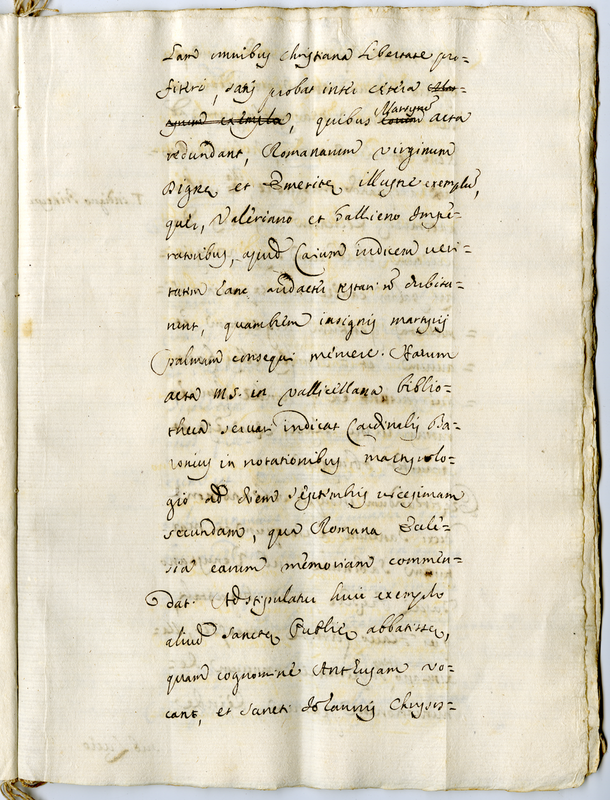 eam omnibus christiana libertate pro=
fiteri, satis probat inter cetera
exempla, quibus Martyrum acta
redundant, Romanarum virginum
Dignæ et Emeritæ illustre exemplū,
quæ, Valeriano et Gallieno Impe=
ratoribus, apud Caium iudicem veri=
tatem eam audacter testari nō dubita=
runt, quam brem insignis martyrij
palmam consequi meruere. Harum
acta ms. in vallicellana biblio=
theca servari indicat Cardinalis Ba=
ronius in notationibus martyrolo=
gio ad diem septembris vicesimam
secundam, qua Romana Eccle=
sia earum memoriam commen=
dat. Adstipulatur huic exemplo
aliud sanctæ Publiæ abbatissæ,
quam cognomine Anthusam vo=
cant, et sancti Ioannis Chrysos=